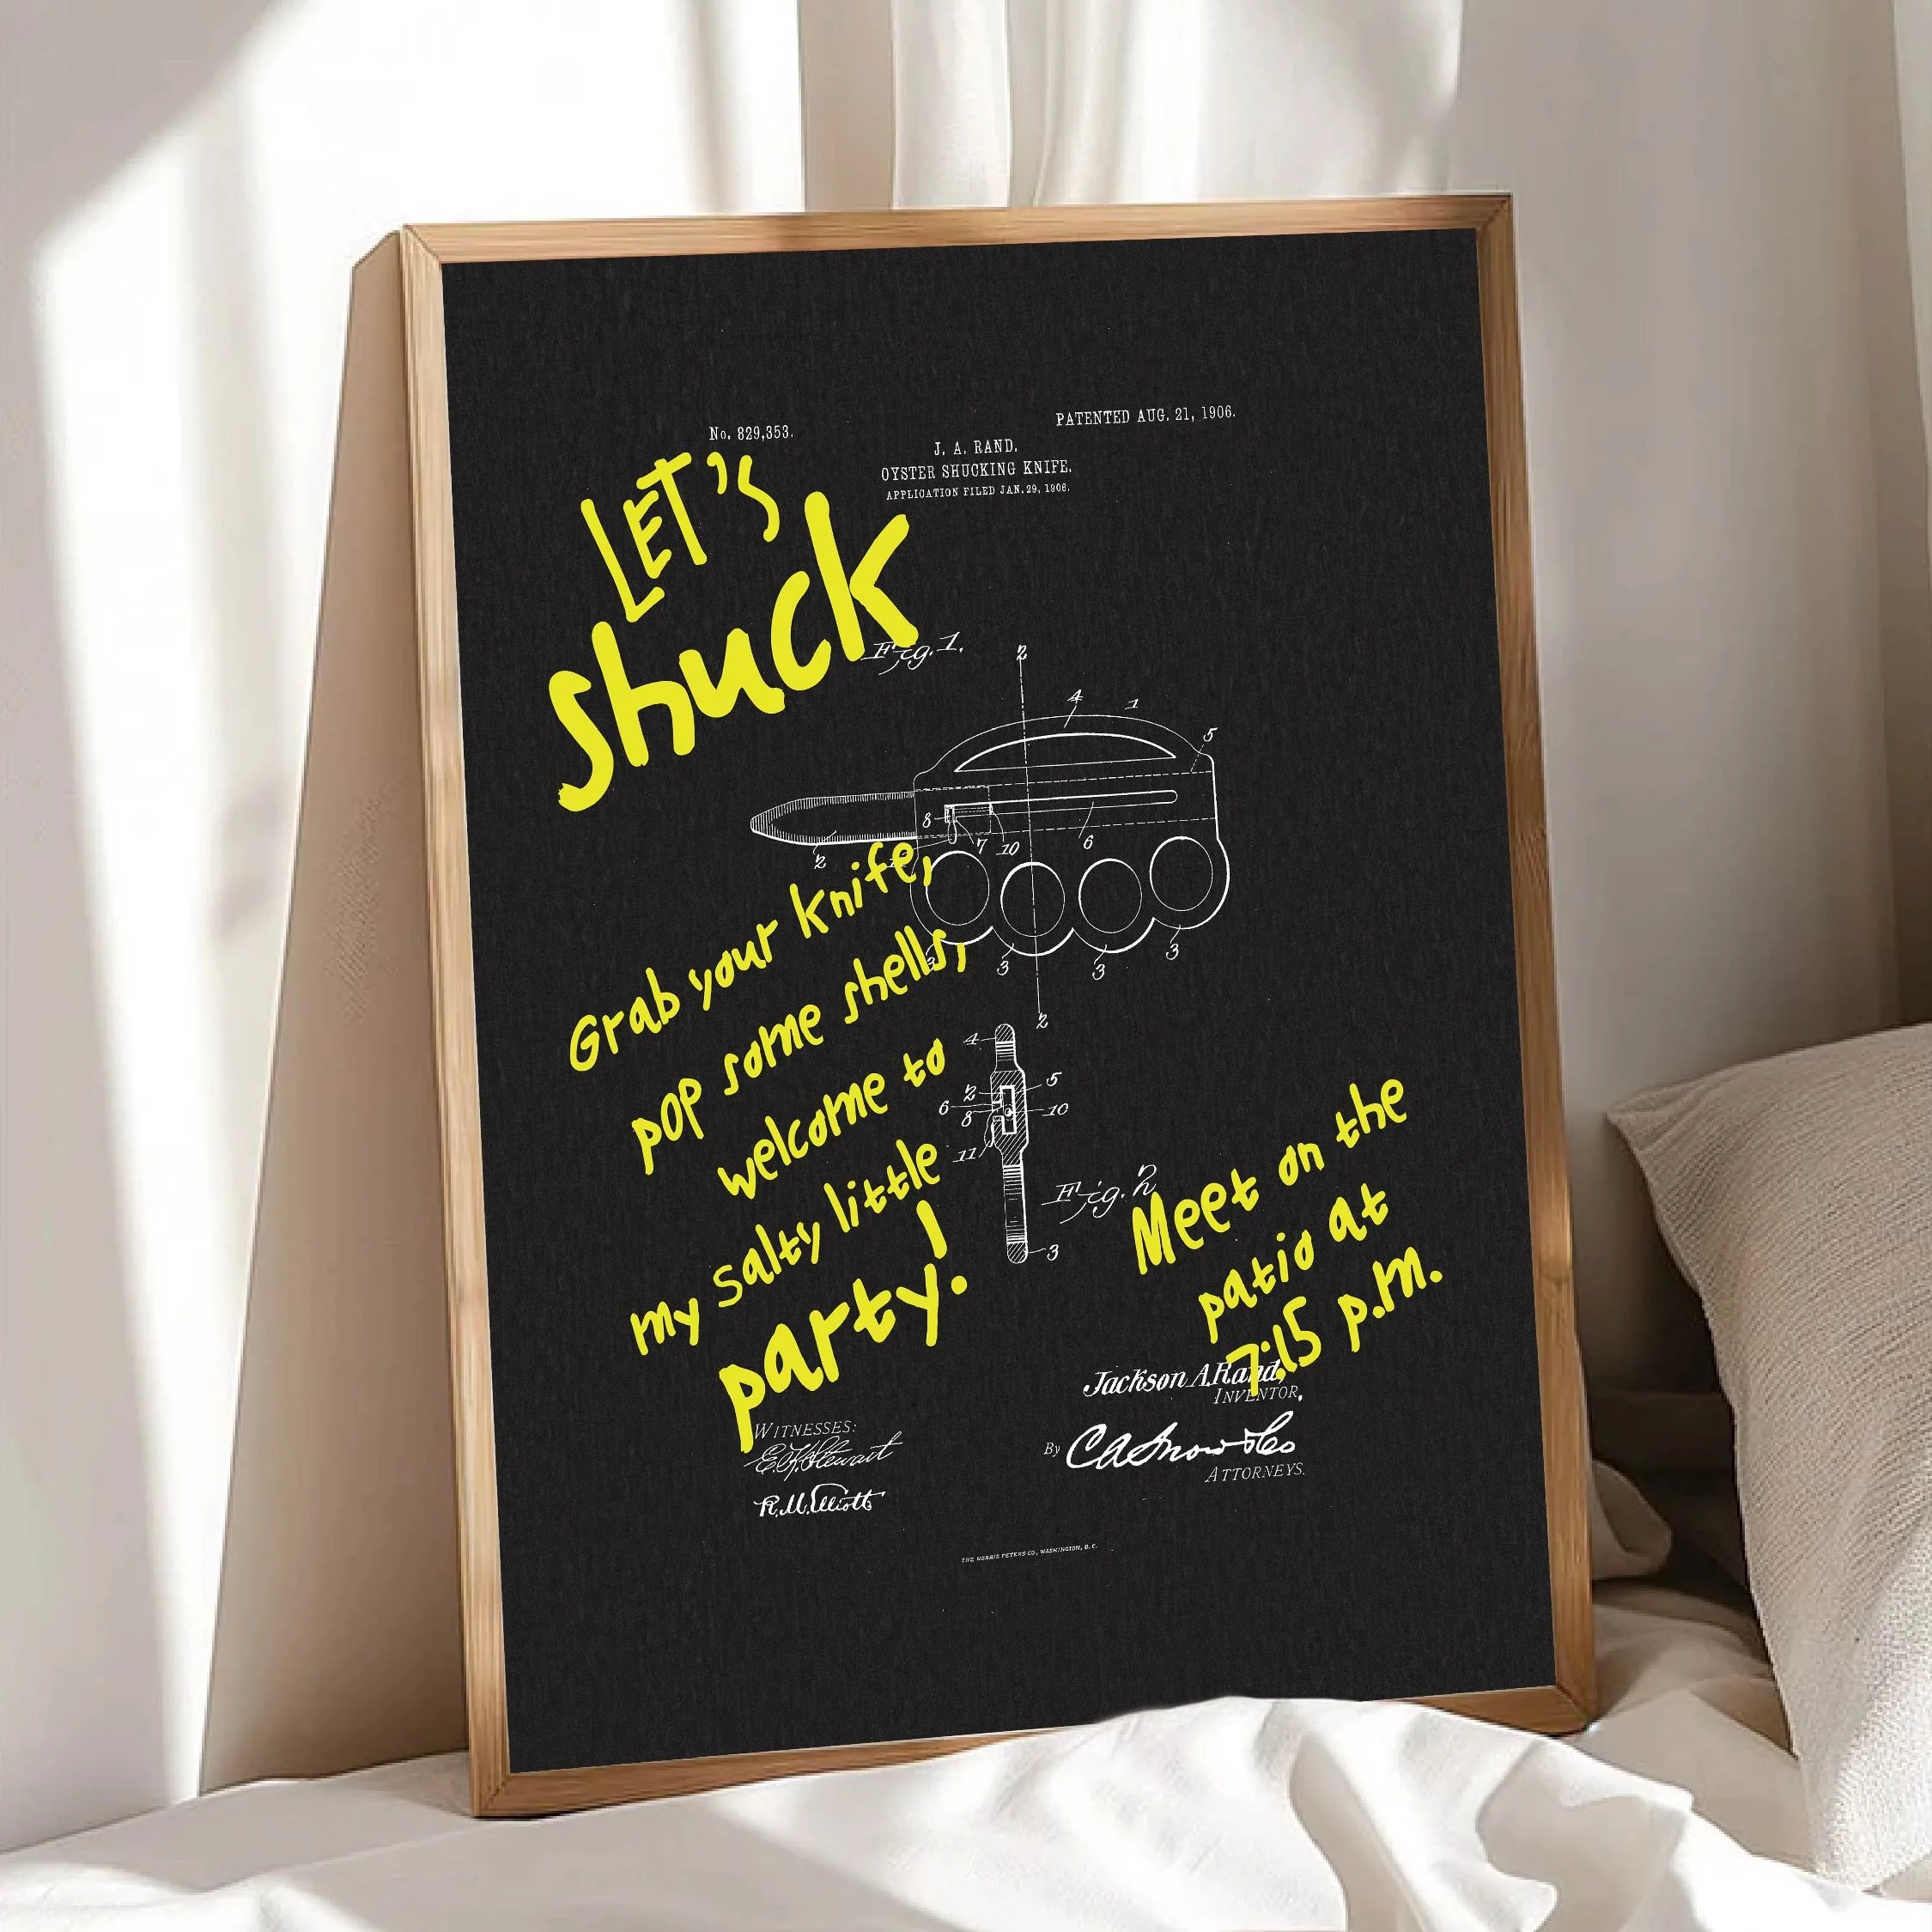 No. 829,353.
PATENTED AUG. 21, 1906.
J. A. RAND.
OYSTER SHUCKING KNIFE.
APPLICATION FILED JAN. 29, 1906.
LET'S
shuck
Fig. 1.
2
4
1
5
8
7
10
6
2
3
3
3
3
2
Grab your knife,
pop some shells,
welcome to
my salty little
party!
4
2
5
6
8
10
11
3
Fig. 2
Meet on the
patio at
7:15 p.m.
Jackson A. Rand,
INVENTOR.
WITNESSES:
E. H. Stewart
R. M. Elliott
By C A Snow & Co
ATTORNEYS.
THE NORRIS PETERS CO., WASHINGTON, D. C.